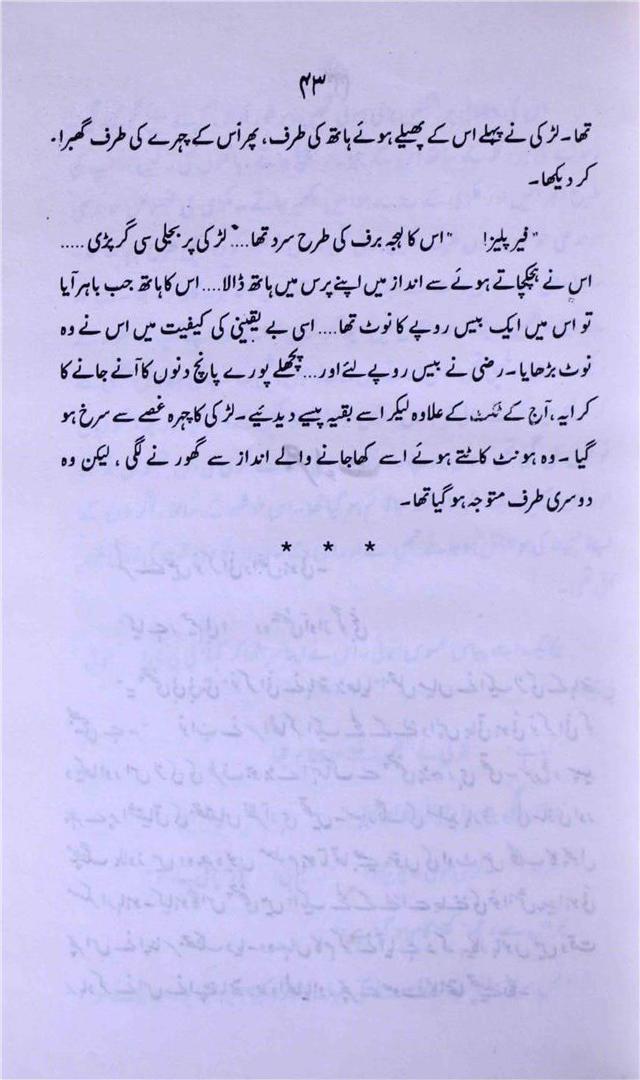 ۴۳
تھا۔ لڑکی نے پہلے اس کے پھیلے ہوئے ہاتھ کی طرف، پھر اُس کے چہرے کی طرف گھبرا
کر دیکھا۔
"فیر پلیز! " اس کا لہجہ برف کی طرح سرد تھا.... لڑکی پر بجلی سی گر پڑی .....
اس نے ہچکچاتے ہوئے سے انداز میں اپنے پرس میں ہاتھ ڈالا.... اس کا ہاتھ جب باہر آیا
تو اس میں ایک بیس روپے کا نوٹ تھا.... اسی بے یقینی کی کیفیت میں اس نے وہ
نوٹ بڑھایا۔ رضی نے بیس روپے لئے اور... پچھلے پورے پانچ دنوں کا آنے جانے کا
کرایہ، آج کے ٹکٹ کے علاوہ لیکر اسے بقیہ پیسے دیدئیے۔ لڑکی کا چہرہ غصے سے سرخ ہو
گیا ۔ وہ ہونٹ کاٹتے ہوئے اسے کھا جانے والے انداز سے گھورنے لگی ، لیکن وہ
دوسری طرف متوجہ ہو گیا تھا۔
* * *